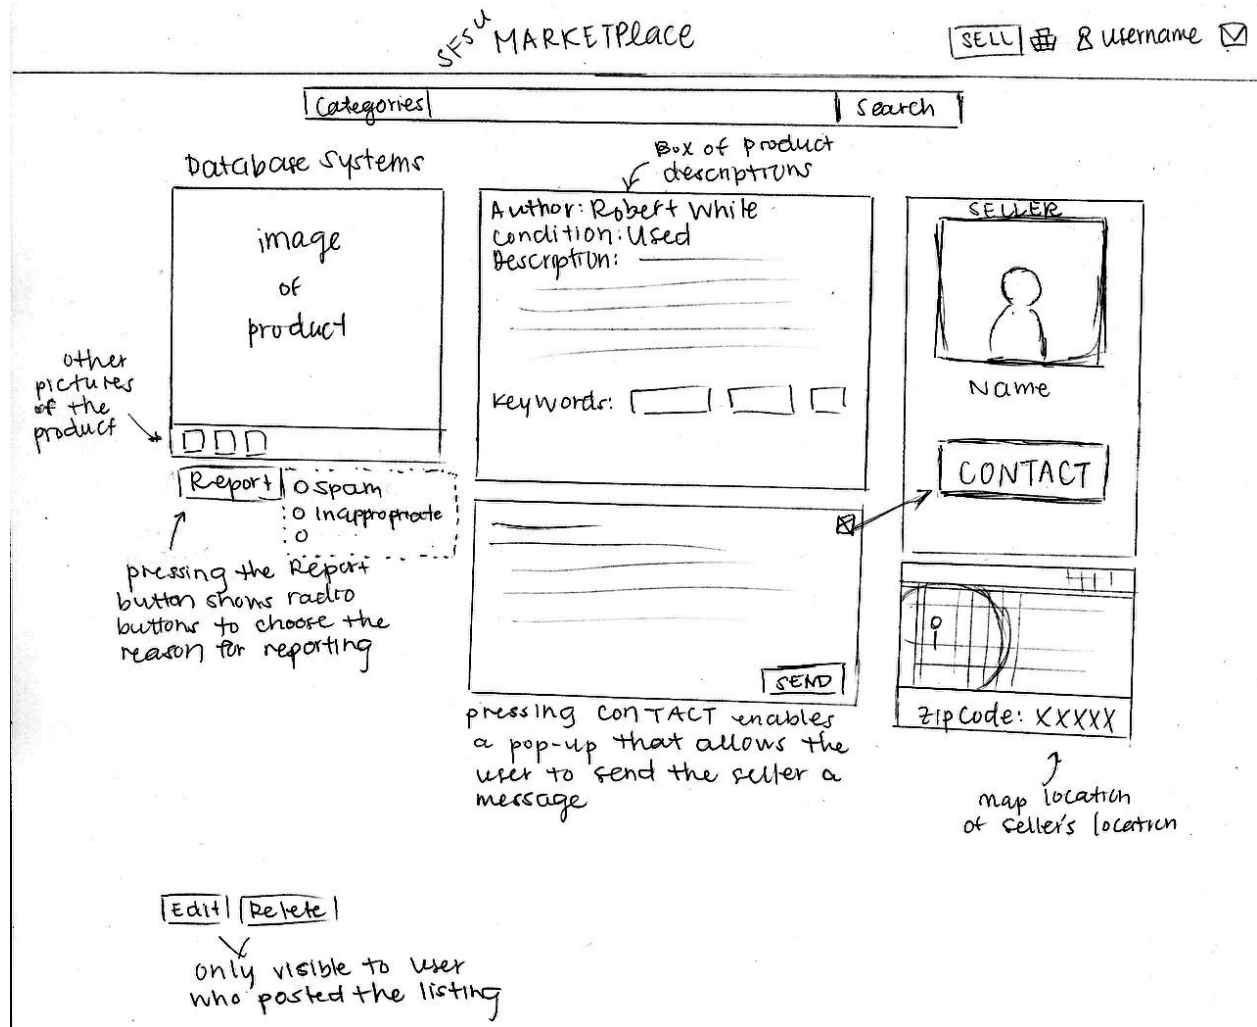 SFSU MARKETPlace
SELL
username
Categories
Search
Database Systems
Box of product
descriptions
image
of
product
Author: Robert While
Condition: Used
Description:
Keywords:
SELLER
Name
CONTACT
other
pictures
of the
product
Report
Spam
Inappropriate
pressing the Report
button shows radio
buttons to choose the
reason for reporting
SEND
pressing CONTACT enables
a pop-up that allows the
user to send the seller a
message
ZipCode: XXXXX
map location
of seller's location
Edit
Delete
only visible to user
who posted the listing